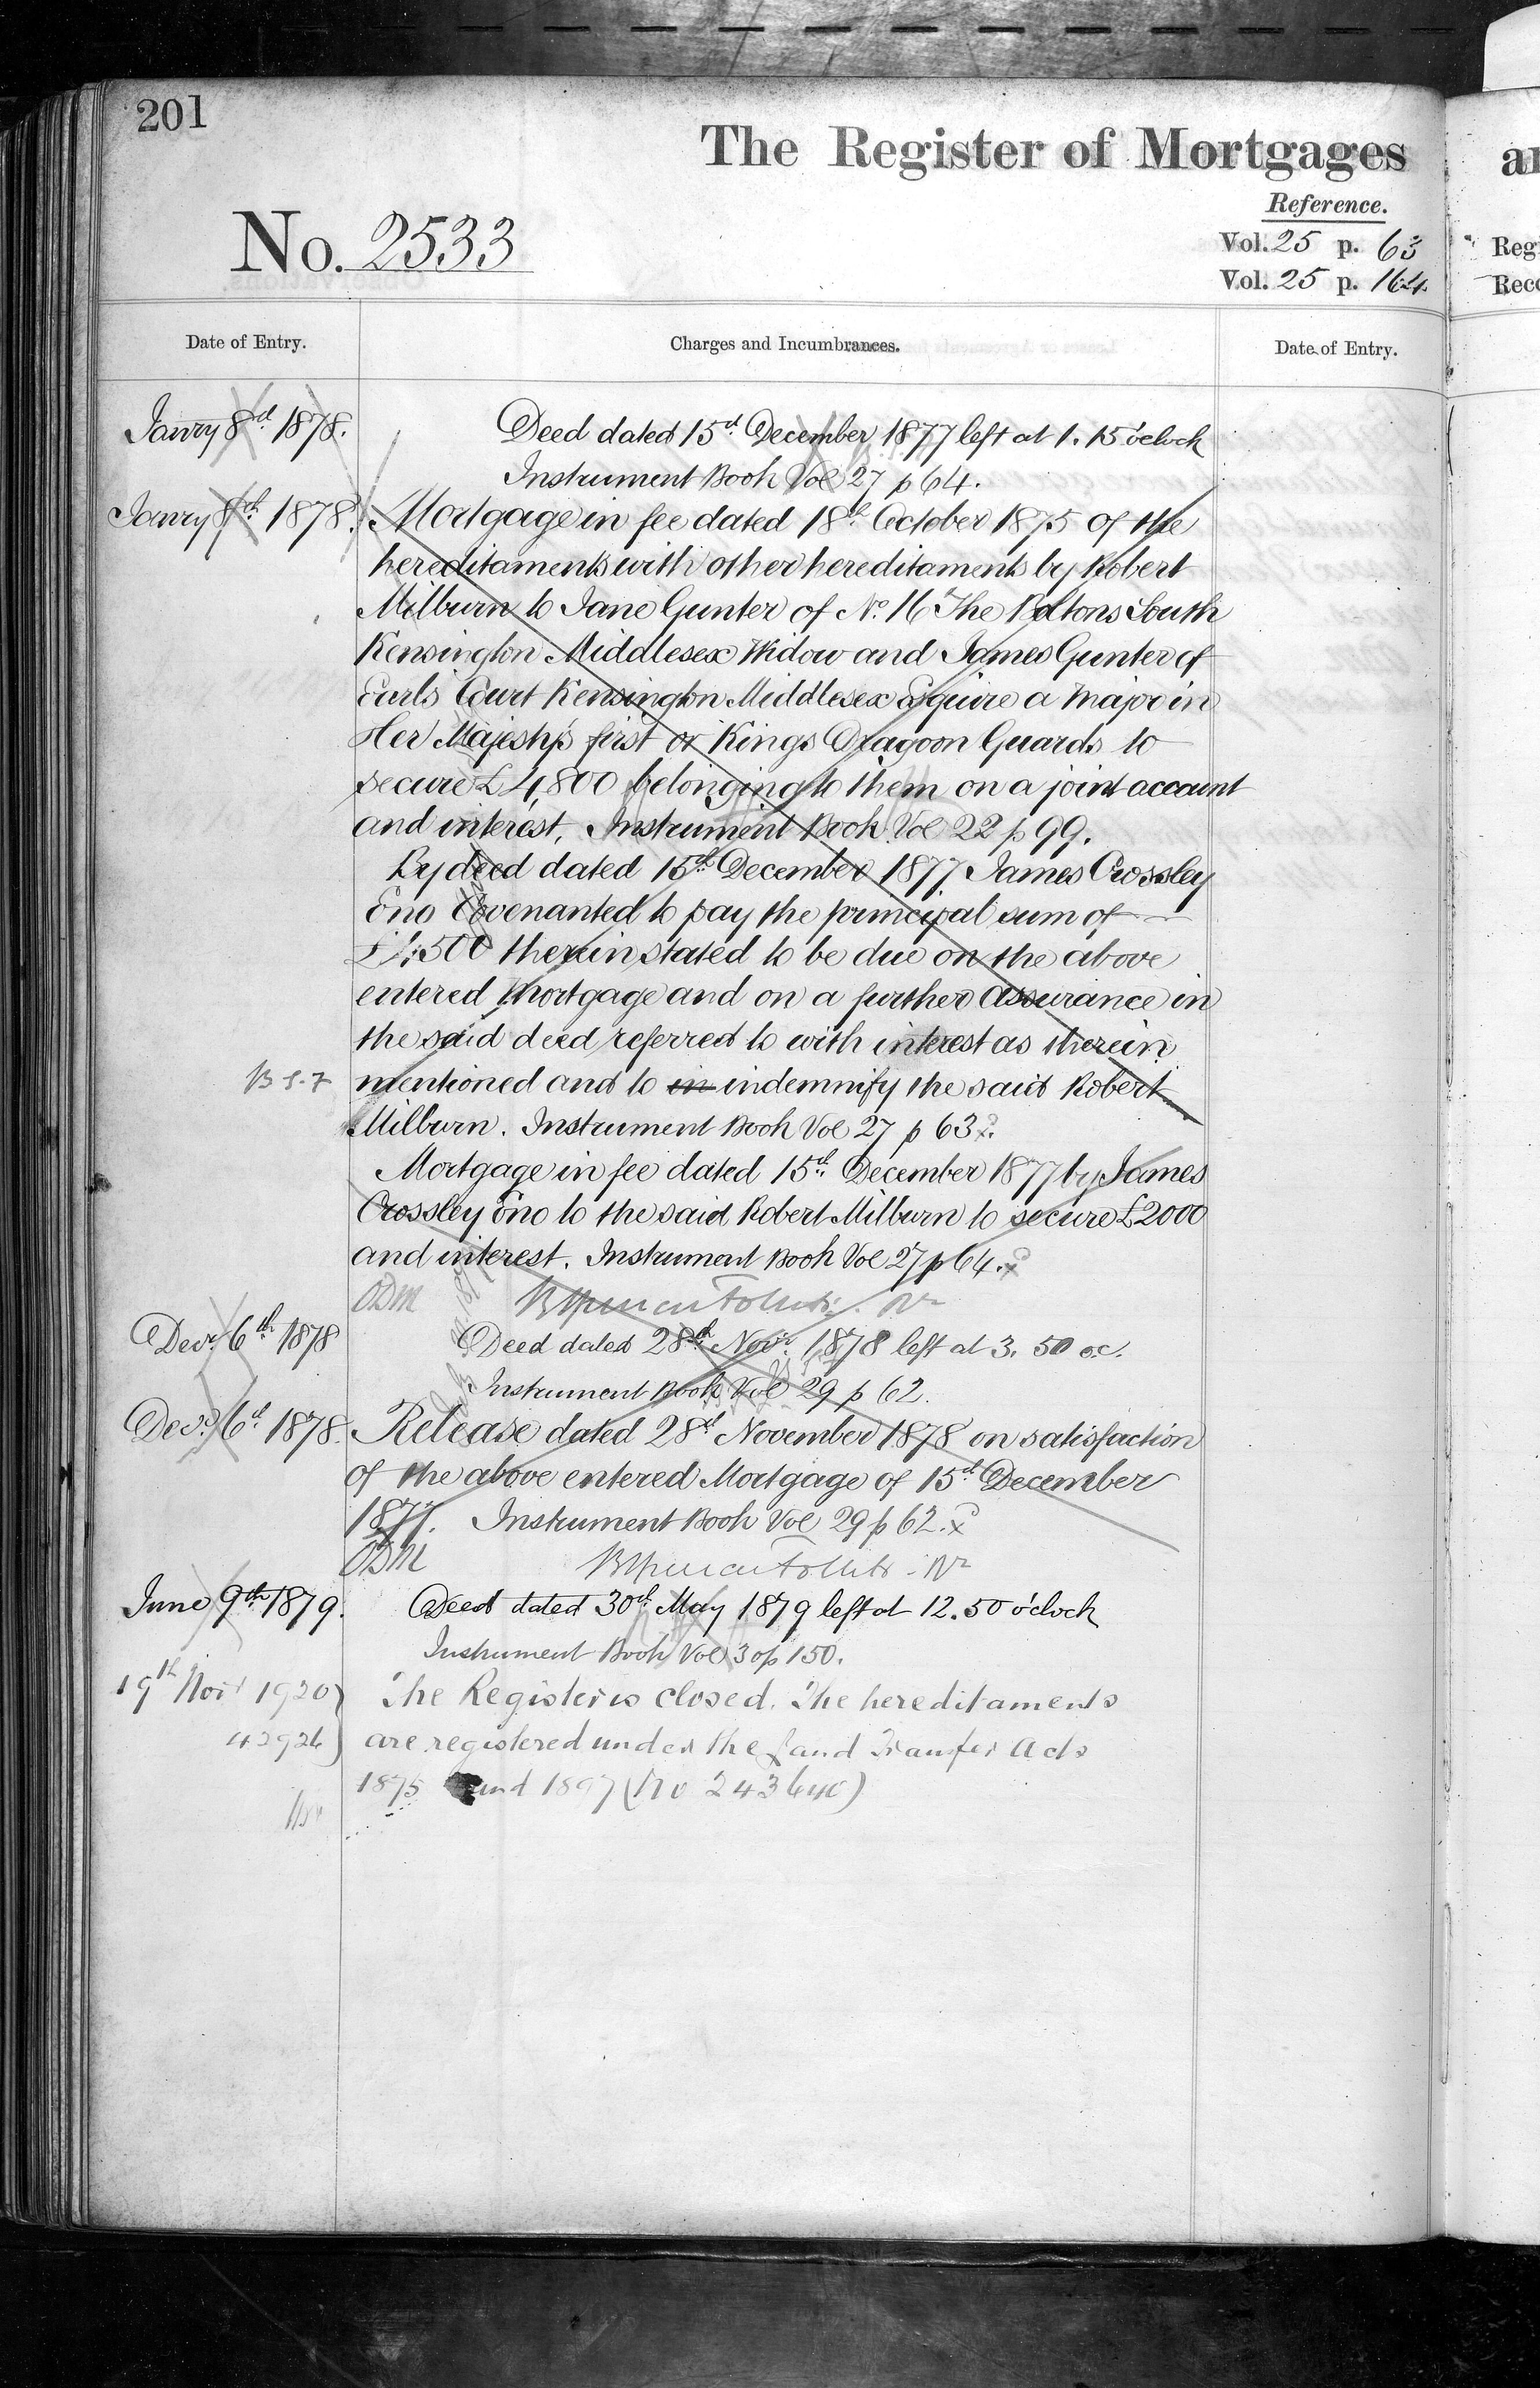 201
The Register of Mortgages
Reference.
No. 2533
Vol. 25 p. 63
Vol. 25 p. 164
Date of Entry.
Charges and Incumbrances.
Date of Entry.
Janry 8th 1878.
Deed dated 15th December 1877 left at 1.15 o'clock
Instrument Book Vol 27 p 64.
Janry 8th 1878.
Mortgage in fee dated 18th October 1875 of the
hereditaments with other hereditaments by Robert
Milburn to Jane Gunter of No. 16 The Boltons South
Kensington Middlesex Widow and James Gunter of
Earls Court Kensington Middlesex Esquire a Major in
Her Majesty's first or Kings Dragoon Guards to
secure £4,800 belonging to them on a joint account
and interest. Instrument Book Vol 22 p 99.
By deed dated 15th December 1877 James Crossley
Eno Covenanted to pay the principal sum of
500 therein stated to be due on the above
entered Mortgage and on a further assurance in
the said deed referred to with interest as therein
mentioned and to in indemnify the said Robert
Milburn. Instrument Book Vol 27 p 63.
Mortgage in fee dated 15th December 1877 by James
Crossley Eno to the said Robert Milburn to secure £2000
and interest. Instrument Book Vol 27 p 64.
ODM
Decr. 6th 1878
Deed dated 28th Novr. 1878 left at 3.50 oc.
Instrument Book Vol 29 p 62.
Decr. 6th 1878.
Release dated 28th November 1878 on satisfaction
of the above entered Mortgage of 15th December
1877. Instrument Book Vol 29 p 62.
ODM
June 9th 1879.
Deed dated 30th May 1879 left at 12.50 o'clock
Instrument Book Vol 30 p 150.
19th Novr 1920
The Register is closed. The hereditaments
are registered under the Land Transfer Acts
1875 and 1897 (No 243640)
Reg
Rec